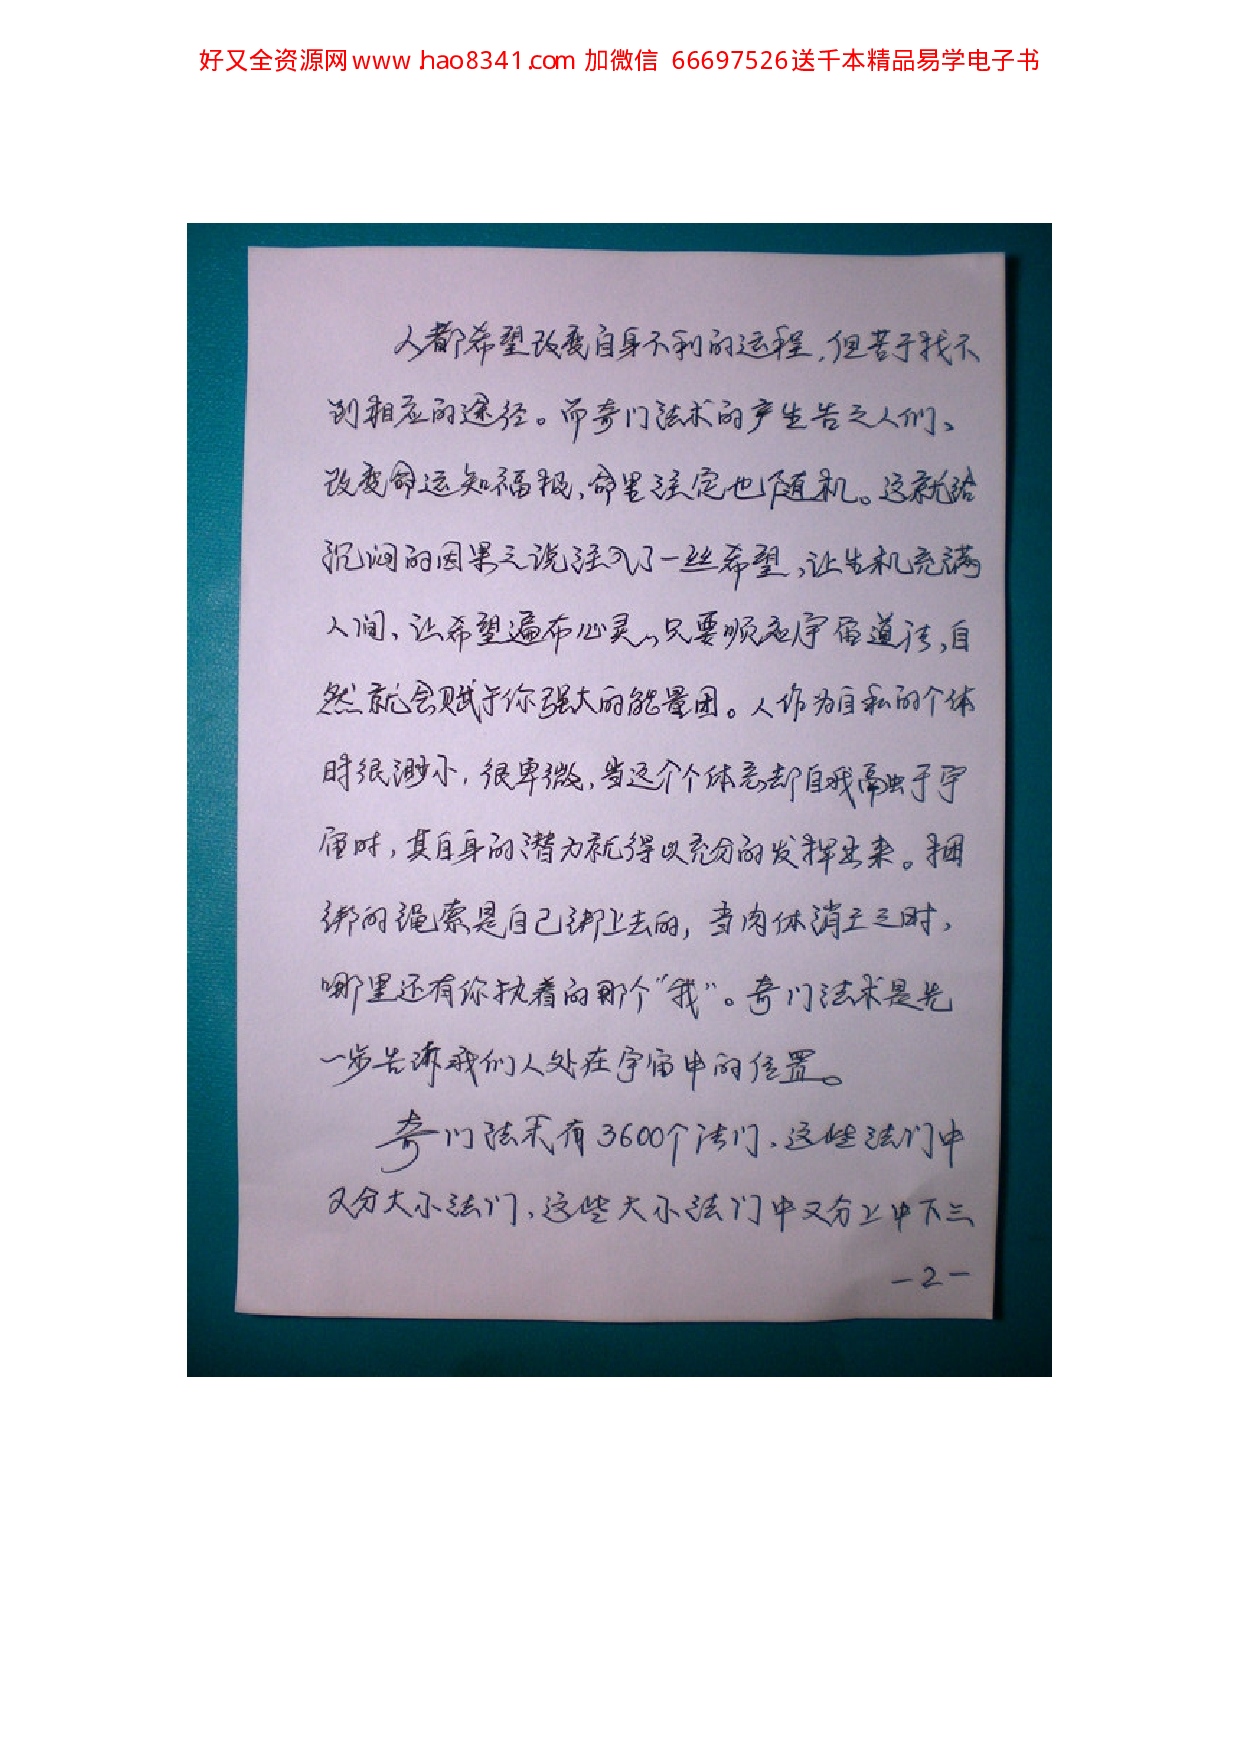 好又全资源网www.hao8341.com 加微信 66697526送千本精品易学电子书
人都希望改变自身不利的运程,但苦于找不
到相应的途径。而奇门法术的产生告之人们、
改变命运知福报,命里注定也随机。这就给
沉闷的因果之说注入了一丝希望,让生机充满
人间、让希望遍布心灵,只要顺应宇宙道法,自
然就会赋于你强大的能量团。人作为自私的个体
时很渺小,很卑微,当这个个体忘却自我融于宇
宙时,其自身的潜力就得以充分的发挥出来。捆
绑的绳索是自己绑上去的,当肉体消亡之时,
哪里还有你执着的那个"我"。奇门法术是先
一步告诉我们人处在宇宙中的位置。
奇门法术有3600个法门、这些法门中
又分大小法门、这些大小法门中又分上中下三
-2-